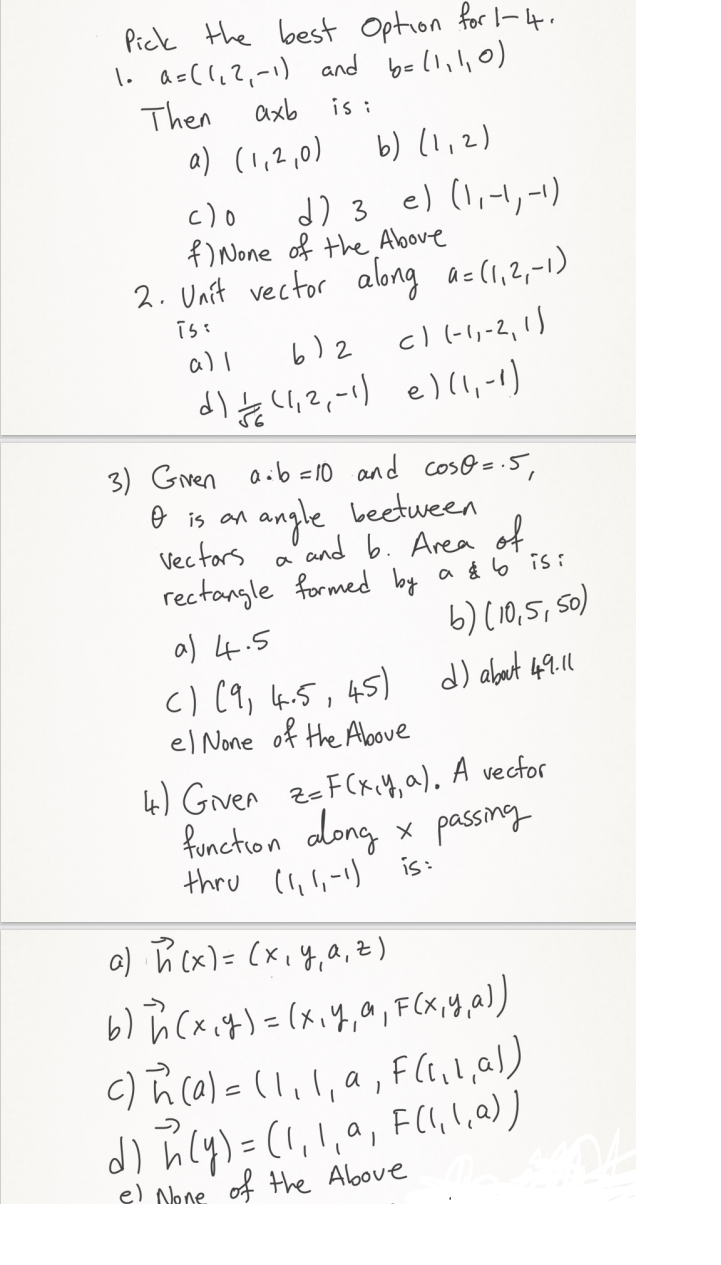 Pick the best Option for 1-4.
1. a=(1,2,-1) and b=(1,1,0)
Then axb is:
a) (1,2,0) b) (1,2)
c) 0 d) 3 e) (1,-1,-1)
f) None of the Above
2. Unit vector along a=(1,2,-1)
is:
a) 1 b) 2 c) (-1,-2,1)
d) 1/√6 (1,2,-1) e) (1,-1)
3) Given a.b=10 and cosθ=.5,
θ is an angle beetween
vectors a and b. Area of
rectangle formed by a & b is:
a) 4.5 b) (10,5,50)
c) (9, 4.5, 45) d) about 49.11
e) None of the Above
4) Given z=F(x,y,a). A vector
function along x passing
thru (1,1,-1) is:
a) h⃗(x)=(x,y,a,z)
b) h⃗(x,y)=(x,y,a,F(x,y,a))
c) h⃗(a)=(1,1,a,F(1,1,a))
d) h⃗(y)=(1,1,a,F(1,1,a))
e) None of the Above